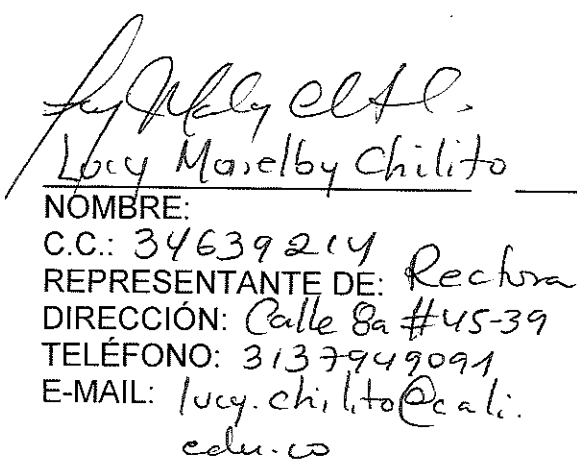 Lucy Marelby Chilito
NOMBRE:
C.C.: 34639214
REPRESENTANTE DE: Rectora
DIRECCIÓN: Calle 8a #45-39
TELÉFONO: 3137949091
E-MAIL: lucy.chilito@cali.
edu.co